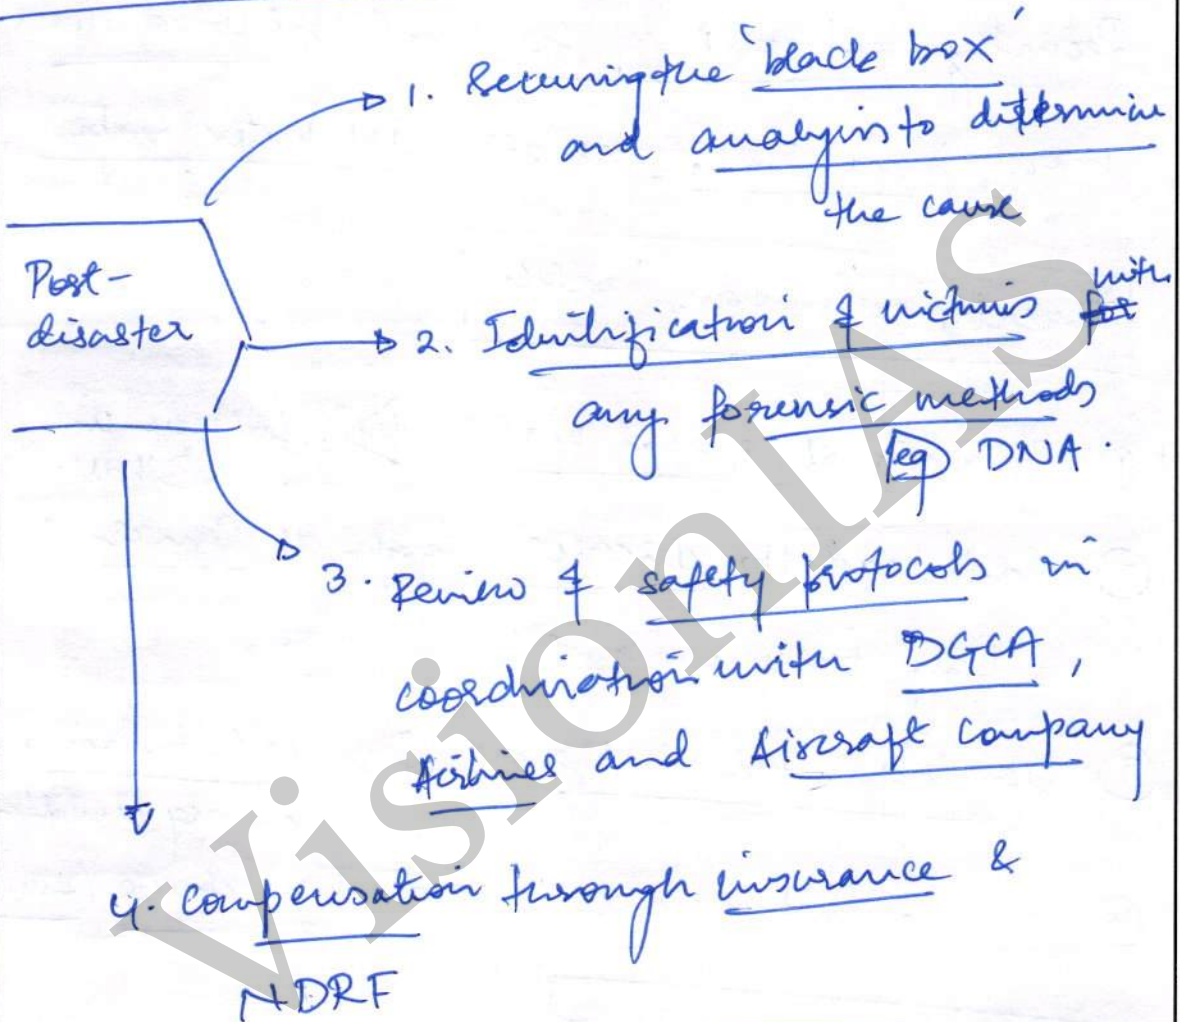 1. Securing the 'black box'
and analysis to determine
the cause
Post-
disaster
2. Identification of victims with for
any forensic methods
eg DNA.
3. Review of safety protocols in
coordination with DGCA,
Airlines and Aircraft company
4. Compensation through insurance &
NDRF
VisionIAS